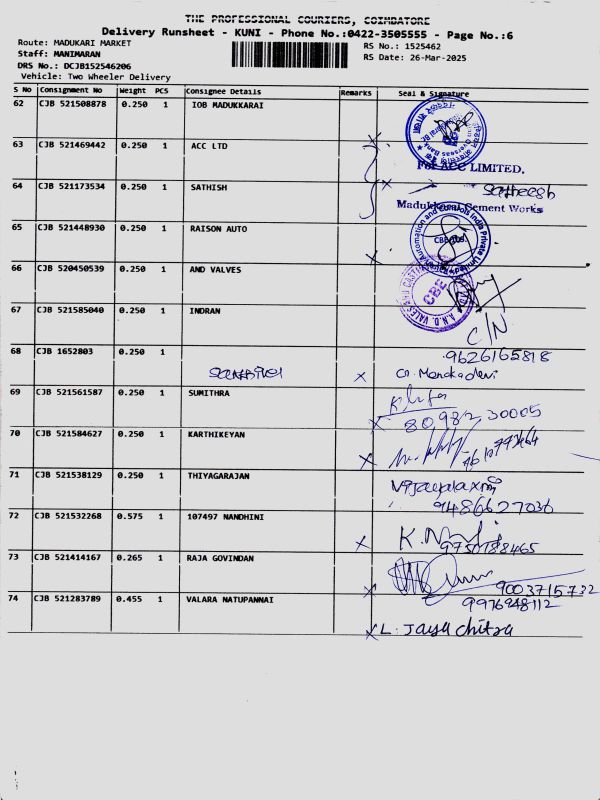 THE PROFESSIONAL COURIERS, COIMBATORE
Delivery Runsheet - KUNI - Phone No.:0422-3505555 - Page No.:6
Route: MADUKARI MARKET
RS No.: 1525462
Staff: MANIMARAN
RS Date: 26-Mar-2025
DRS No.: DCJB152546206
Vehicle: Two Wheeler Delivery
S No Consignment No Weight PCS Consignee Details Remarks Seal & Signature
62 CJB 521508878 0.250 1 IOB MADUKKARAI
63 CJB 521469442 0.250 1 ACC LTD
For ACC LIMITED.
64 CJB 521173534 0.250 1 SATHISH
Satheesh
Madukkarai Cement Works
65 CJB 521448930 0.250 1 RAISON AUTO
66 CJB 520450539 0.250 1 AND VALVES
CBE
67 CJB 521585040 0.250 1 INDRAN
C/N
9626165818
68 CJB 1652803 0.250 1
Menakadevi
69 CJB 521561587 0.250 1 SUMITHRA
80982 30005
70 CJB 521584627 0.250 1 KARTHIKEYAN
71 CJB 521538129 0.250 1 THIYAGARAJAN
Vijayalaxmi
9486627036
72 CJB 521532268 0.575 1 107497 NANDHINI
9750188465
73 CJB 521414167 0.265 1 RAJA GOVINDAN
9003715732
9976948112
74 CJB 521283789 0.455 1 VALARA NATUPANNAI
L. Jaya chitra